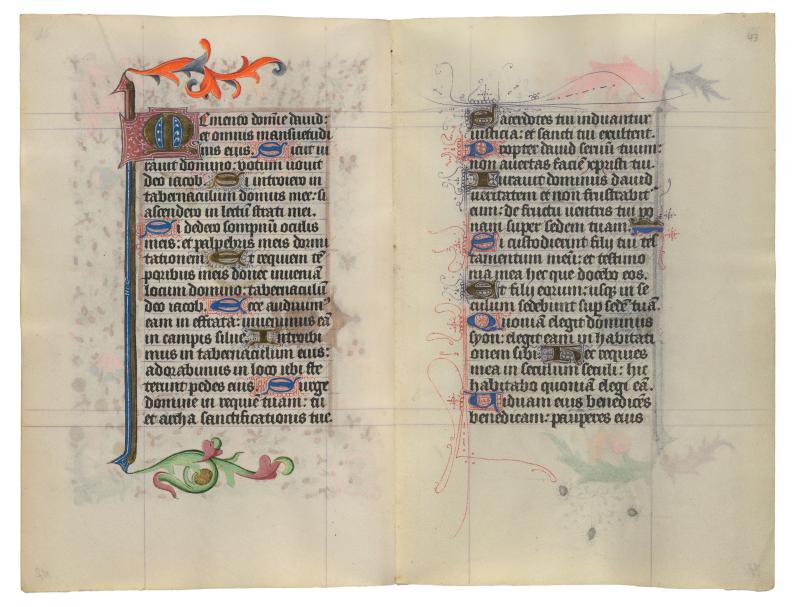 Memento domĩe dauid:
et omnis mansuetudi
nis eius. Sicut iu
rauit domino: uotum uouit
deo iacob. Si introiero in
tabernaculum domus mee: si
ascendero in lectũ strati mei.
Si dedero sompnũ oculis
meis: et palpebris meis dormi
tationem. Et requiem tẽ
poribus meis donec inueniã
locum domino: tabernaculũ
deo iacob. Ecce audiuimꝰ
eam in effrata: inuenimus eã
in campis silue. Introibi
mus in tabernaculum eius:
adorabimus in loco ubi ste
terunt pedes eius. Surge
domine in requiẽ tuam: tu
et archa sanctificationis tue.
Sacerdotes tui induantur
iusticia: et sancti tui exultent.
Propter dauid seruũ tuum:
non auertas faciẽ xpristi tui.
Iurauit dominus dauid
ueritatem et non frustrabit
eum: de fructu uentris tui po
nam super sedem tuam.
Si custodierint filij tui tes
tamentum meũ: et testimo
nia mea hec que docebo eos.
Et filij eorum: usqꝫ in se
culum sedebunt sup sedẽ tuã.
Quoniã elegit dominus
syon: elegit eam in habitati
onem sibi. Hec requies
mea in seculum seculi: hic
habitabo quoniã elegi eã.
Uiduam eius benedicẽs
benedicam: pauperes eius